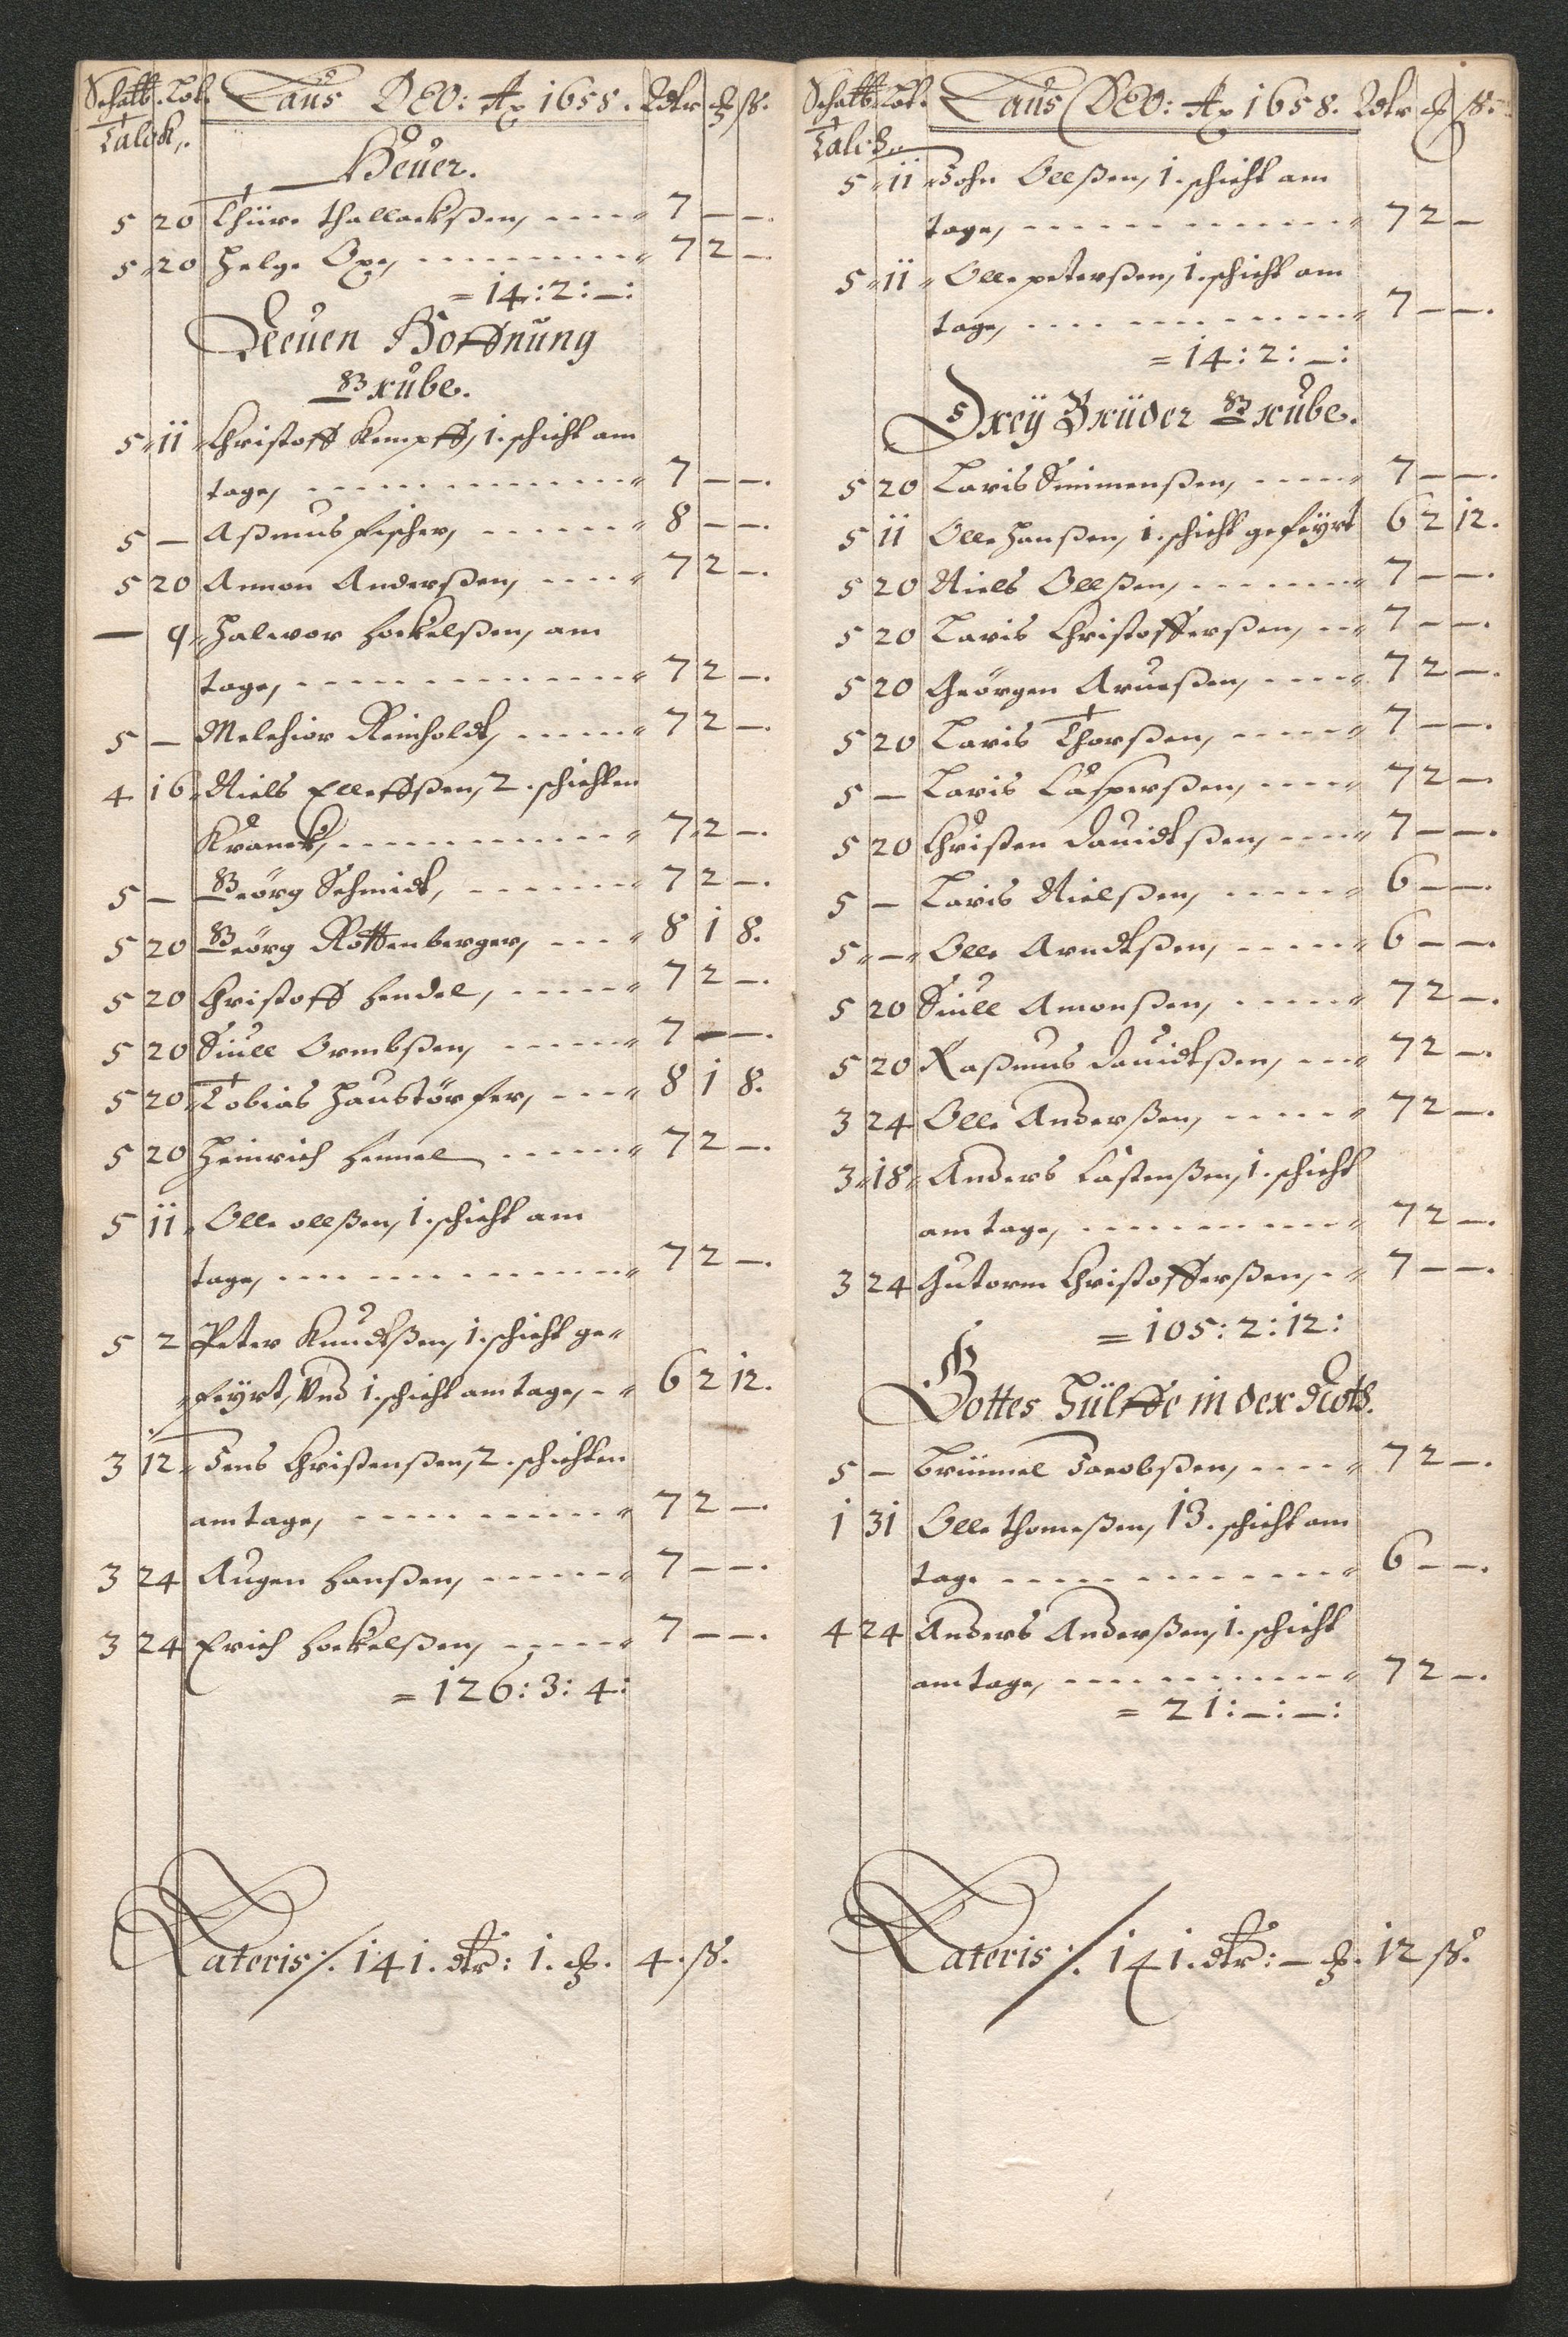 Schatb. Lot. Laus DEO: Ao 1658. Rdlr ℔ ß.
Talck,.
Heuer.
5 20 Thüre Thallackßen, 7 – –.
5 20 Helge Oxe, 7 2 –.
= 14: 2: –:
Neuen Hoffnung
Grube.
5 11 Christoff Kempff, 1. schicht am
tage, 7 – –.
5 – Aßmus Fischer, 8 – –.
5 20 Amon Anderßen, 7 2 –.
– 9 Halvor Hockelßen, am
tage, 7 2 –.
5 – Melchior Reinholdt, 7 2 –.
4 16 Niels Elleffßen, 2. schichten
Kranck, 7 2 –.
5 – Geörg Schmidt, 7 2 –.
5 20 Geörg Rottenberger, 8 1 8.
5 20 Christoff Hendel, 7 2 –.
5 20 Siull Ormbßen, 7 – –.
5 20 Tobias Haustörfer, 8 1 8.
5 20 Heinrich Hemel 7 2 –.
5 11 Olle ollßen, 1. schicht am
tage, 7 2 –.
5 2 Peter Knudtßen, 1. schicht ge-
feyrt, Vnd 1. schicht am tage, 6 2 12.
3 12 Jens Christenßen, 2. schichten
am tage, 7 2 –.
3 24 Augen Hanßen, 7 – –.
3 24 Erich Hockelßen, 7 – –.
= 126: 3: 4:
Lateris /. 141. dlr: 1. ℔. 4. ß.
Schatb. Lot. Laus DEO: Ao 1658. Rdlr ℔ ß.
Talck,.
5 11 John Ollßen, 1. schicht am
tage, 7 2 –
5 11 Olle peterßen, 1. schicht am
tage, 7 – –.
= 14: 2: –:
Dreÿ Brüder Grube.
5 20 Laris Simmenßen, 7 – –.
5 11 Olle Hanßen, 1. schicht gefeÿrt 6 2 12.
5 20 Niels Ollßen, 7 – –.
5 20 Laris Christofferßen, 7 – –.
5 20 Geörgen Arueßen, 7 2 –.
5 20 Laris Thorßen, 7 – –.
5 – Laris Casperßen, 7 2 –.
5 20 Christen Dauidtßen, 7 – –.
5 – Laris Nielßen, 6 – –.
5 – Olle Arndtßen, 6 – –.
5 20 Siull Amonßen, 7 2 –.
5 20 Raßmus Dauidtßen, 7 2 –.
3 24 Olle Anderßen, 7 2 –.
3 18 Anders Castenßen, 1. schicht
am tage, 7 2 –.
3 24 Gutorm Christofferßen, 7 – –.
= 105: 2: 12:
Gottes Hülffe in der Noth.
5 – Brümel Jacobßen, 7 2 –.
1 31 Olle Thomeßen, 13. schicht am
tage 6 – –.
4 24 Anders Anderßen, 1. schicht
am tage, 7 2 –.
= 21: –: –:
Lateris /. 141. dlr: – ℔. 12 ß.